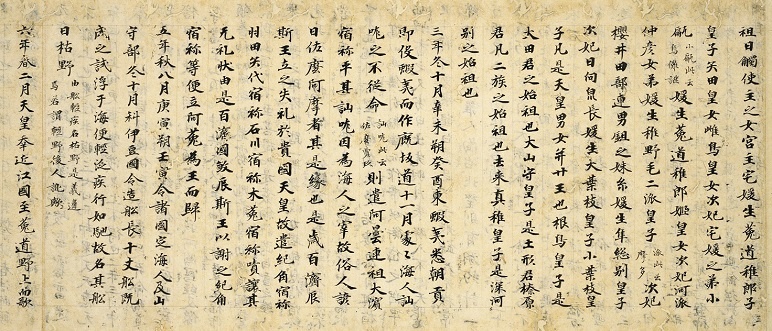 祖日觸使主之女宮主宅媛生菟道稚郎子
皇子矢田皇女雌鳥皇女次妃宅媛之弟小
甂小甂此云烏儺謎媛生菟道稚郎姬皇女次妃河派
仲彦女弟媛生稚野毛二派皇子派此云摩多次妃
櫻井田部連男鉏之妹糸媛生隼総別皇子
次妃日向泉長媛生大葉枝皇子小葉枝皇
子凡是天皇男女并廿王也根鳥皇子是
大田君之始祖也大山守皇子是土形君榛原
君凡二族之始祖也去来真稚皇子是深河
別之始祖也
三年冬十月辛未朔癸酉東蝦夷悉朝貢
即役蝦夷而作廐坂道十一月處々海人訕
哤之不從命訕哤此云則遣阿曇連祖大濱
宿祢平其訕哤因為海人之宰故俗人諺
曰佐麼阿摩者其是緣也是歲百濟辰
斯王立之失礼於貴國天皇故遣紀角宿祢
羽田矢代宿祢石川宿祢木菟宿祢嘖讓其
无礼狀由是百濟國敦辰斯王以謝之紀角
宿祢等便立阿菟為王而歸
五年秋八月庚寅朔壬寅令諸國定海人及山
守部冬十月科伊豆國令造船長十丈船既
成之試浮于海便輕泛疾行如馳故名其船
曰枯野由船輕疾名枯野是義違焉若謂輕野後人訛歟
六年春二月天皇幸近江國至菟道野上而歌